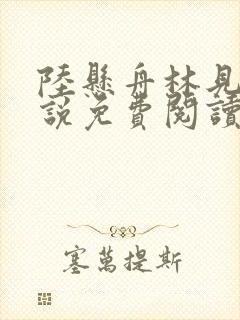 陸懸舟林見
說免費閱讀
塞萬提斯